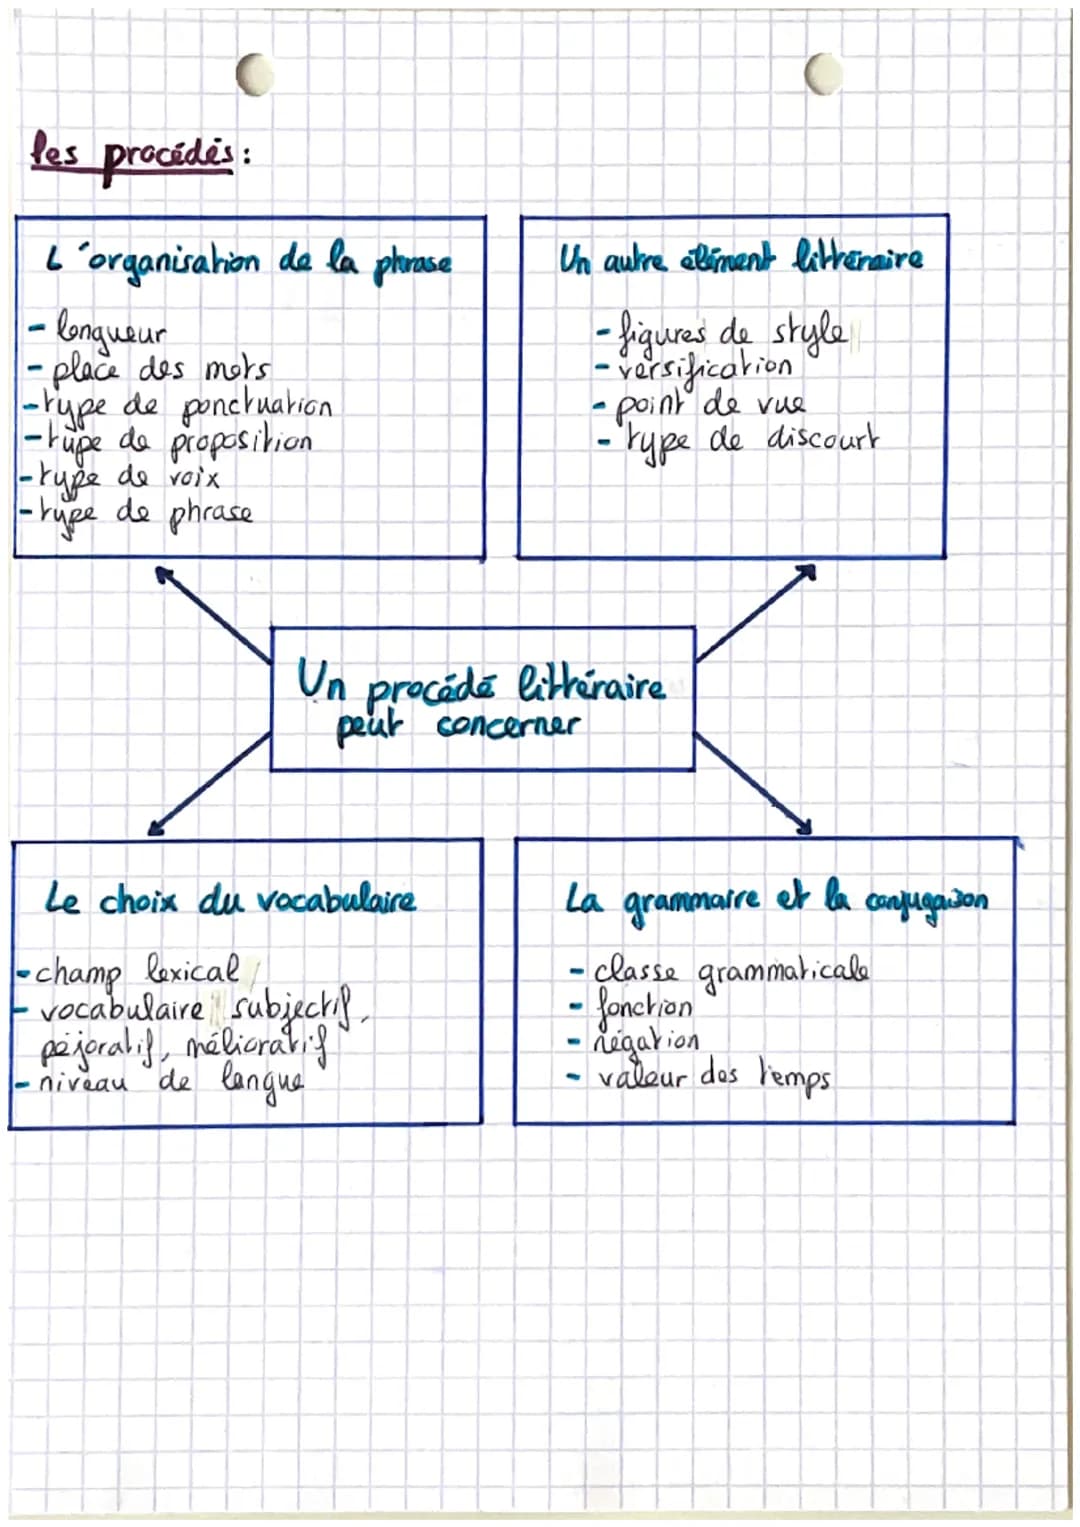 les procédés :
L'organisation de la phrase
- longueur
- place des mots
- type de ponctuation
- type de proposition
- type de voix
- type de phrase
Un autre élément littéraire
- figures de style
- versification
- point de vue
- type de discourt
Un procédé littéraire
peut concerner
Le choix du vocabulaire
- champ lexical
- vocabulaire subjectif,
péjoratif, mélioratif
- niveau de langue
La grammaire et la conjugaison
- classe grammaticale
- fonction
- négation
- valeur des temps